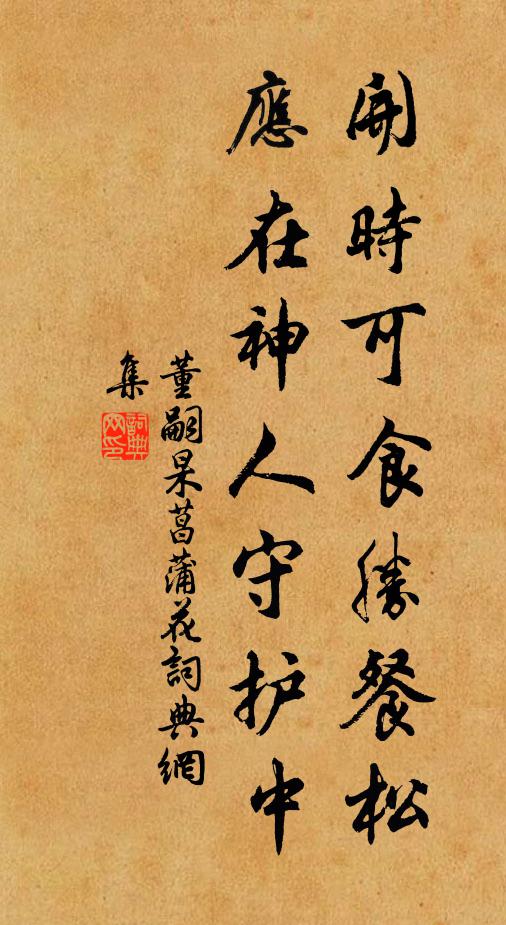 開時可食勝餐松
應在神人守护中
董嗣杲菖蒲花詞典網
集
詞典
网印